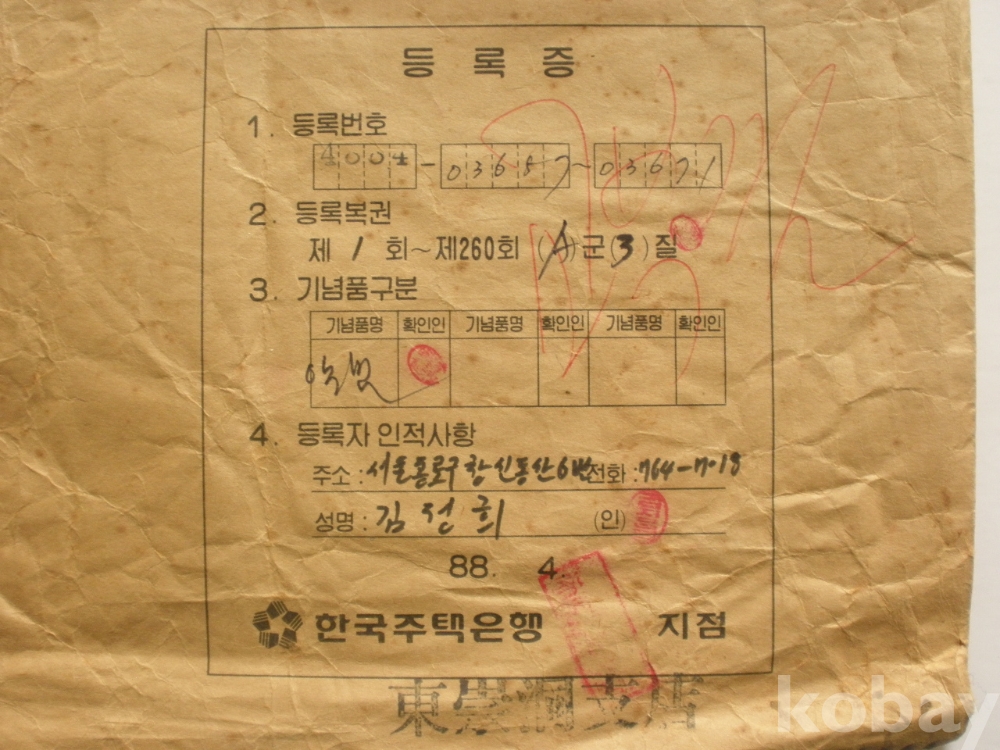 등록증
1. 등록번호
4004-03687~03671
2. 등록복권
제 1 회~제260회 (A)군(3)질
3. 기념품구분
기념품명 확인인 기념품명 확인인 기념품명 확인인
4. 등록자 인적사항
주소: 서울종로구창신동산6번 전화:764-7018
성명: 김 전 희 (인)
88. 4.
한국주택은행 지점
東崇洞支店
kobay